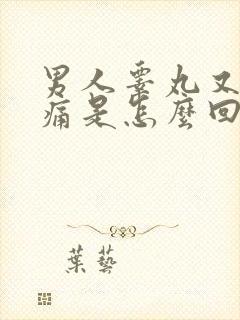 男人睾丸又
痛是怎麼回
葉藝